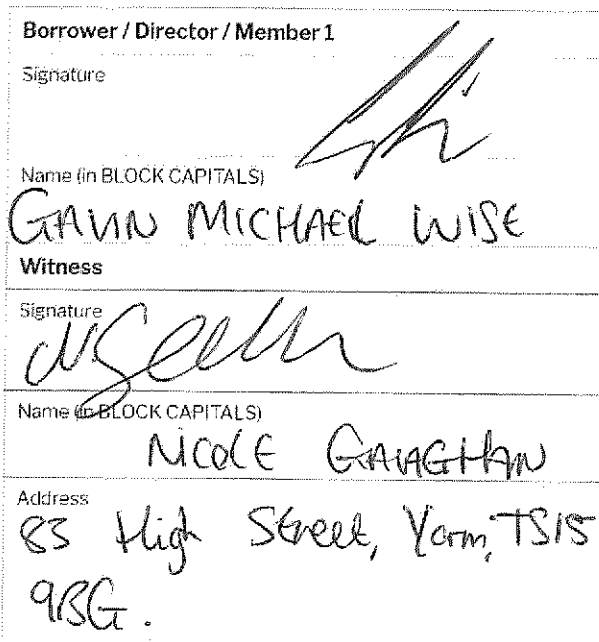 Borrower / Director / Member 1
Signature
Name (in BLOCK CAPITALS)
GAVIN MICHAEL WISE
Witness
Signature
Name (in BLOCK CAPITALS)
NICOLE GAUGHAN
Address
83 High Street, Yarm, TS15
9BG.